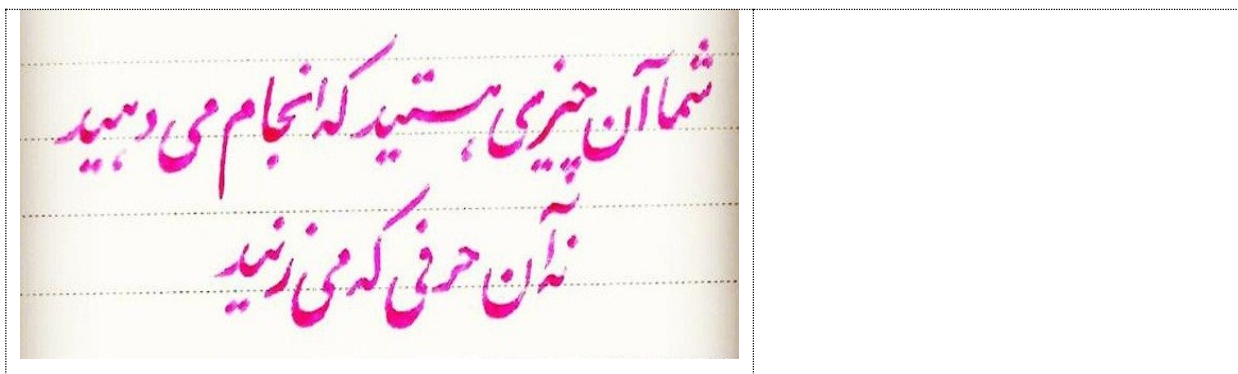 شما آن چیزی هستید که انجام می دهید
نه آن حرفی که می زنید